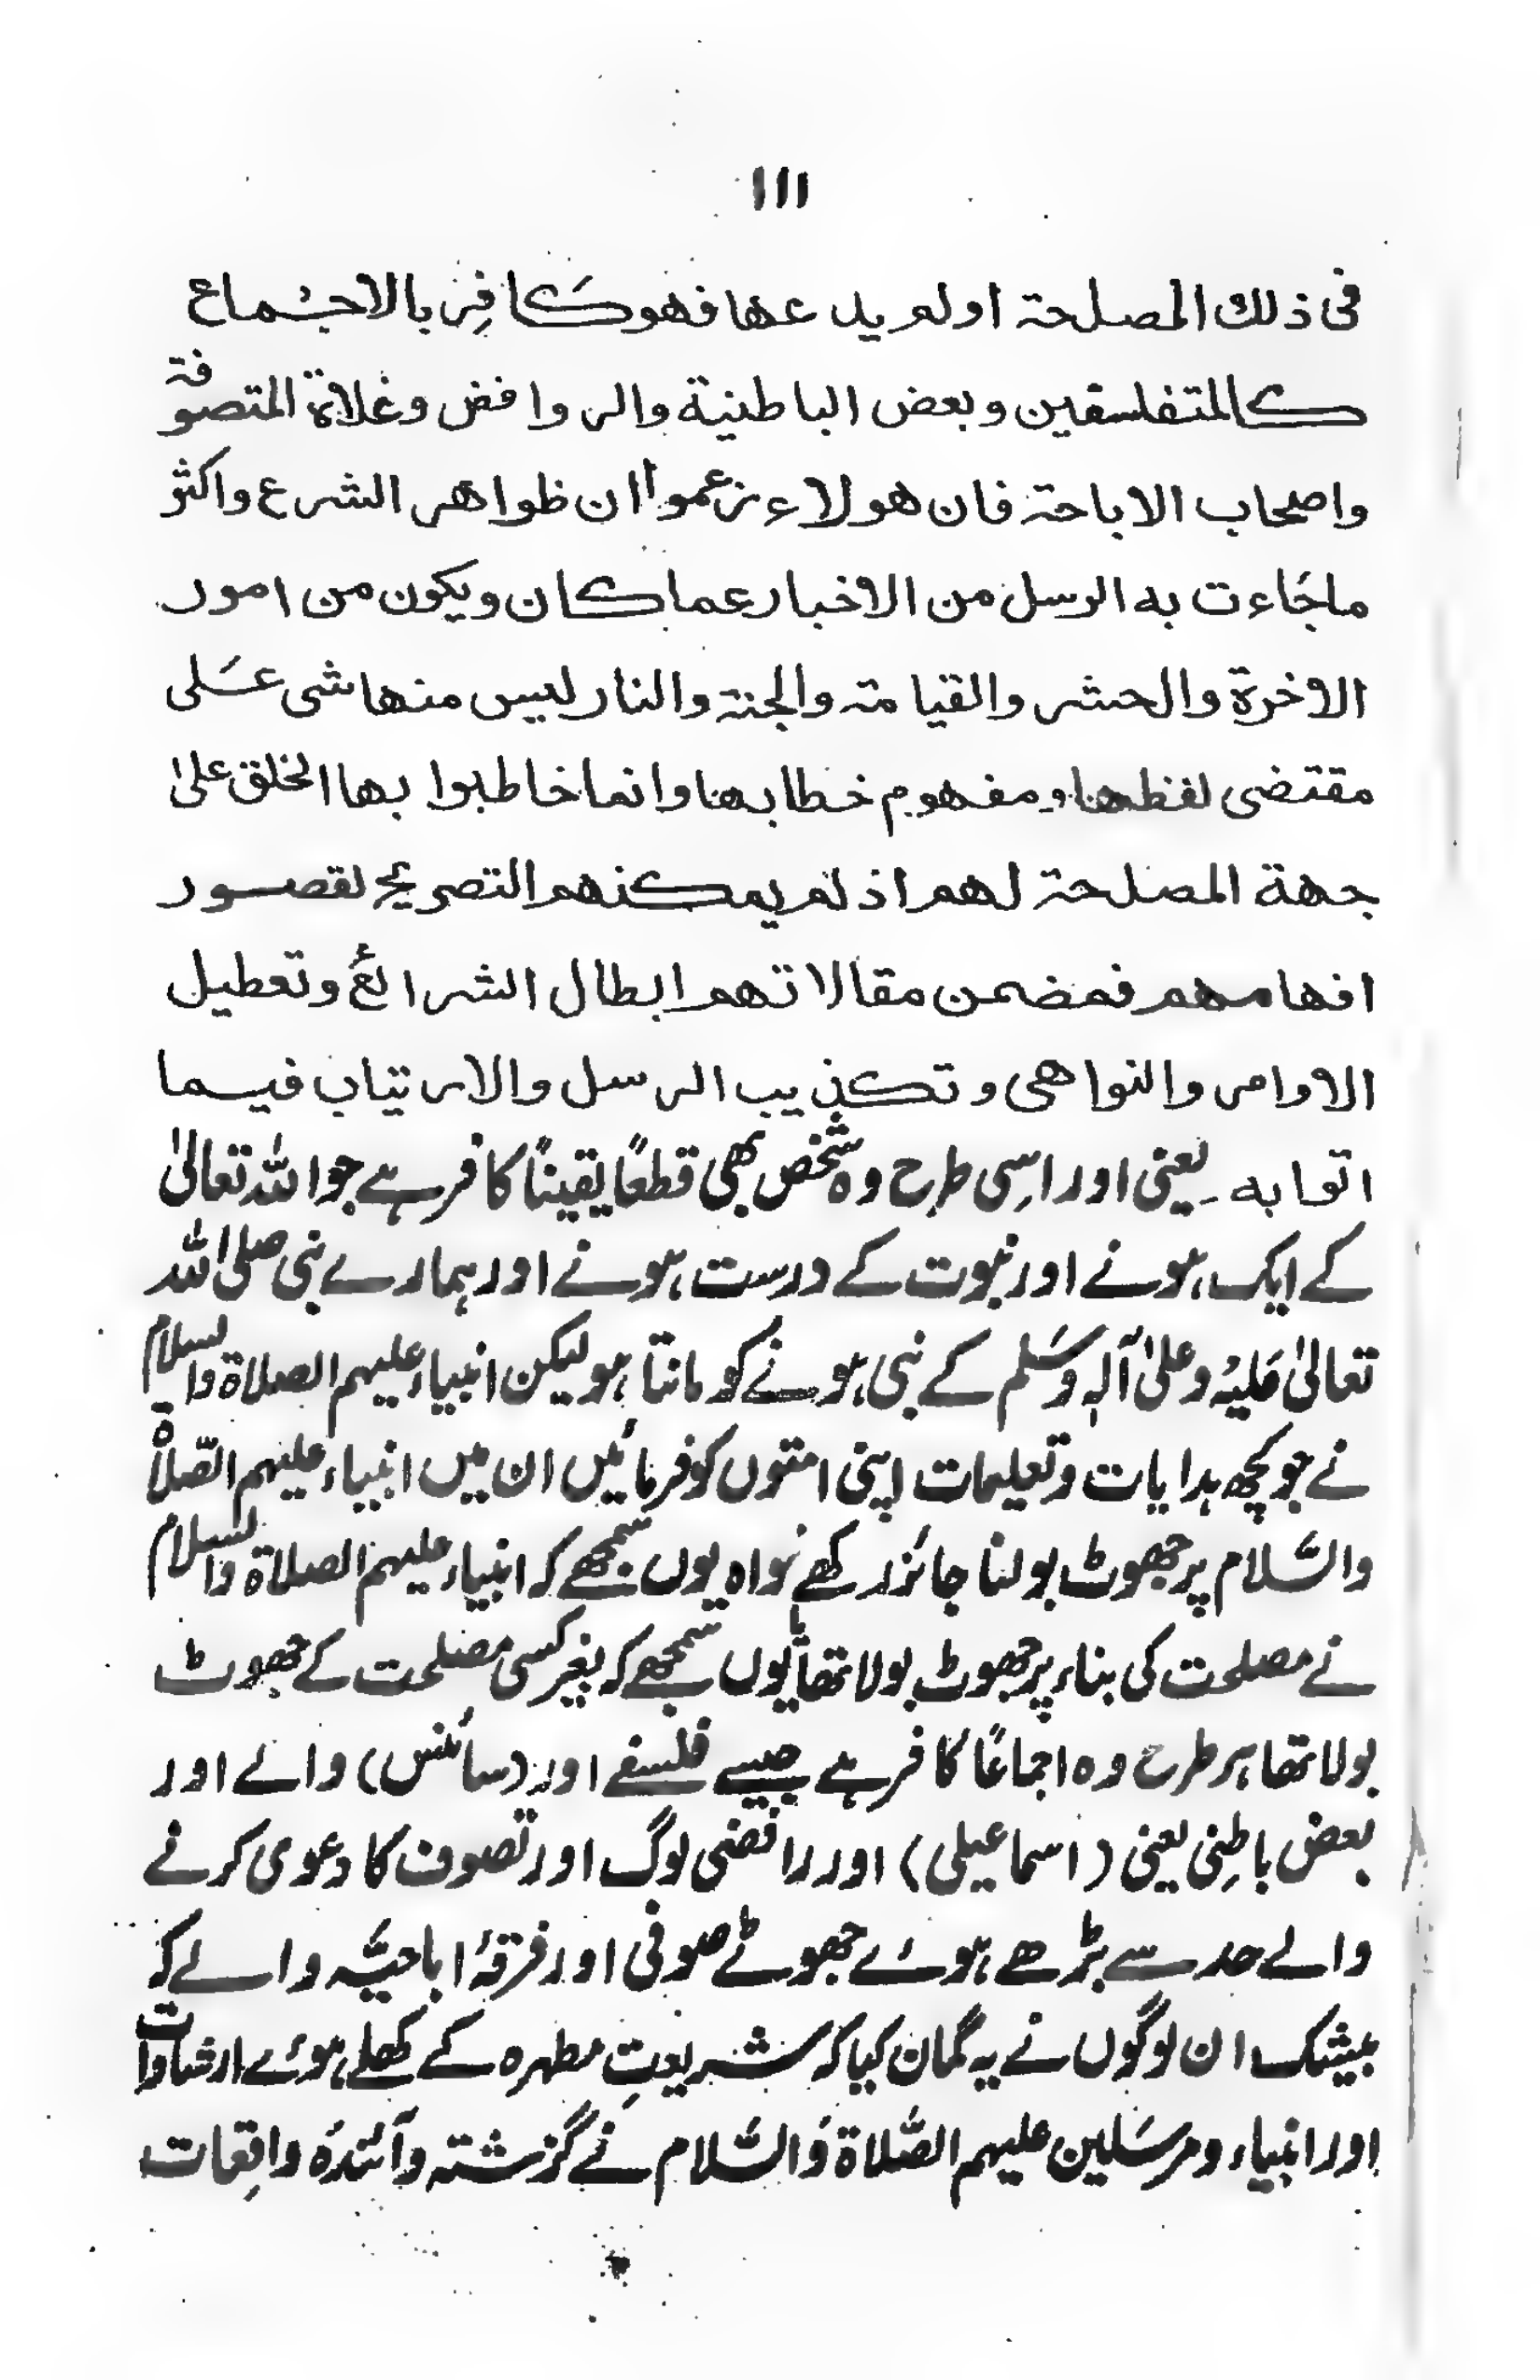 ۱۱۱
فی ذلك المصلحة اولم يدعها فهو كَافِر بالاجْماع
كالمتفلسفين وبعض الباطنية والروافض وغلاة المتصوفة
واصحاب الاباحة فان هولاء زعموا ان ظواهر الشرع واكثر
ماجَاءت به الرسل من الاخبار عما كان ويكون من امور
الاخرة والحشر والقيامة والجنة والنار ليس منها شی عَلی
مقتضی لفظها ومفهوم خطابها وانما خاطبوا بها الخلق علیٰ
جهة المصلحة لهم اذ لم يمكنهم التصريح لقصور
افهامهم فمضمن مقالاتهم ابطال الشرائع وتعطيل
الاوامر والنواهی وتكذيب الرسل والارتياب فيما
اتوا به ۔ یعنی اور اسِی طرح وہ شخص بھی قطعًا یقینًا کافر ہے جو اللہ تعالیٰ
کے ایک ہونے اور نبوت کے درست ہونے اور ہمارے نبی صلی اللہ
تعالیٰ عَلیْہ وعلیٰ آلہٖ وَسَلم کے نبی ہونے کو مانتا ہو لیکن انبیاء علیہم الصلاۃ والسلام
نے جو کچھ ہدایات وتعلیمات اپنی امتوں کو فرمائیں ان میں انبیاء علیہم الصّلاۃ
والسّلام پر جھوٹ بولنا جائز رکھے خواہ یوں سمجھے کہ انبیاء علیہم الصلاۃ والسلام
نے مصلحت کی بناء پر جھوٹ بولا تھا یا یوں سمجھے کہ بغیر کسی مصلحت کے جھوٹ
بولا تھا ہر طرح وہ اجماعًا کافر ہے جیسے فلسفے اور (سائنس) والے اور
بعض باطِنی یعنی (اسماعیلی) اور رافضی لوگ اور تصوف کا دعوی کرنے
والے حد سے بڑھے ہوئے جھوٹے صوفی اور فرقۂ اباحیّہ والے کہ
بیشک ان لوگوں نے یہ گمان کیا کہ شریعتِ مطہرہ کے کھلے ہوئے ارشادات
اور انبیاء ومرسَلین علیہم الصَّلاۃ وَالسَّلام نے گزشتہ وآئندہ واقِعات